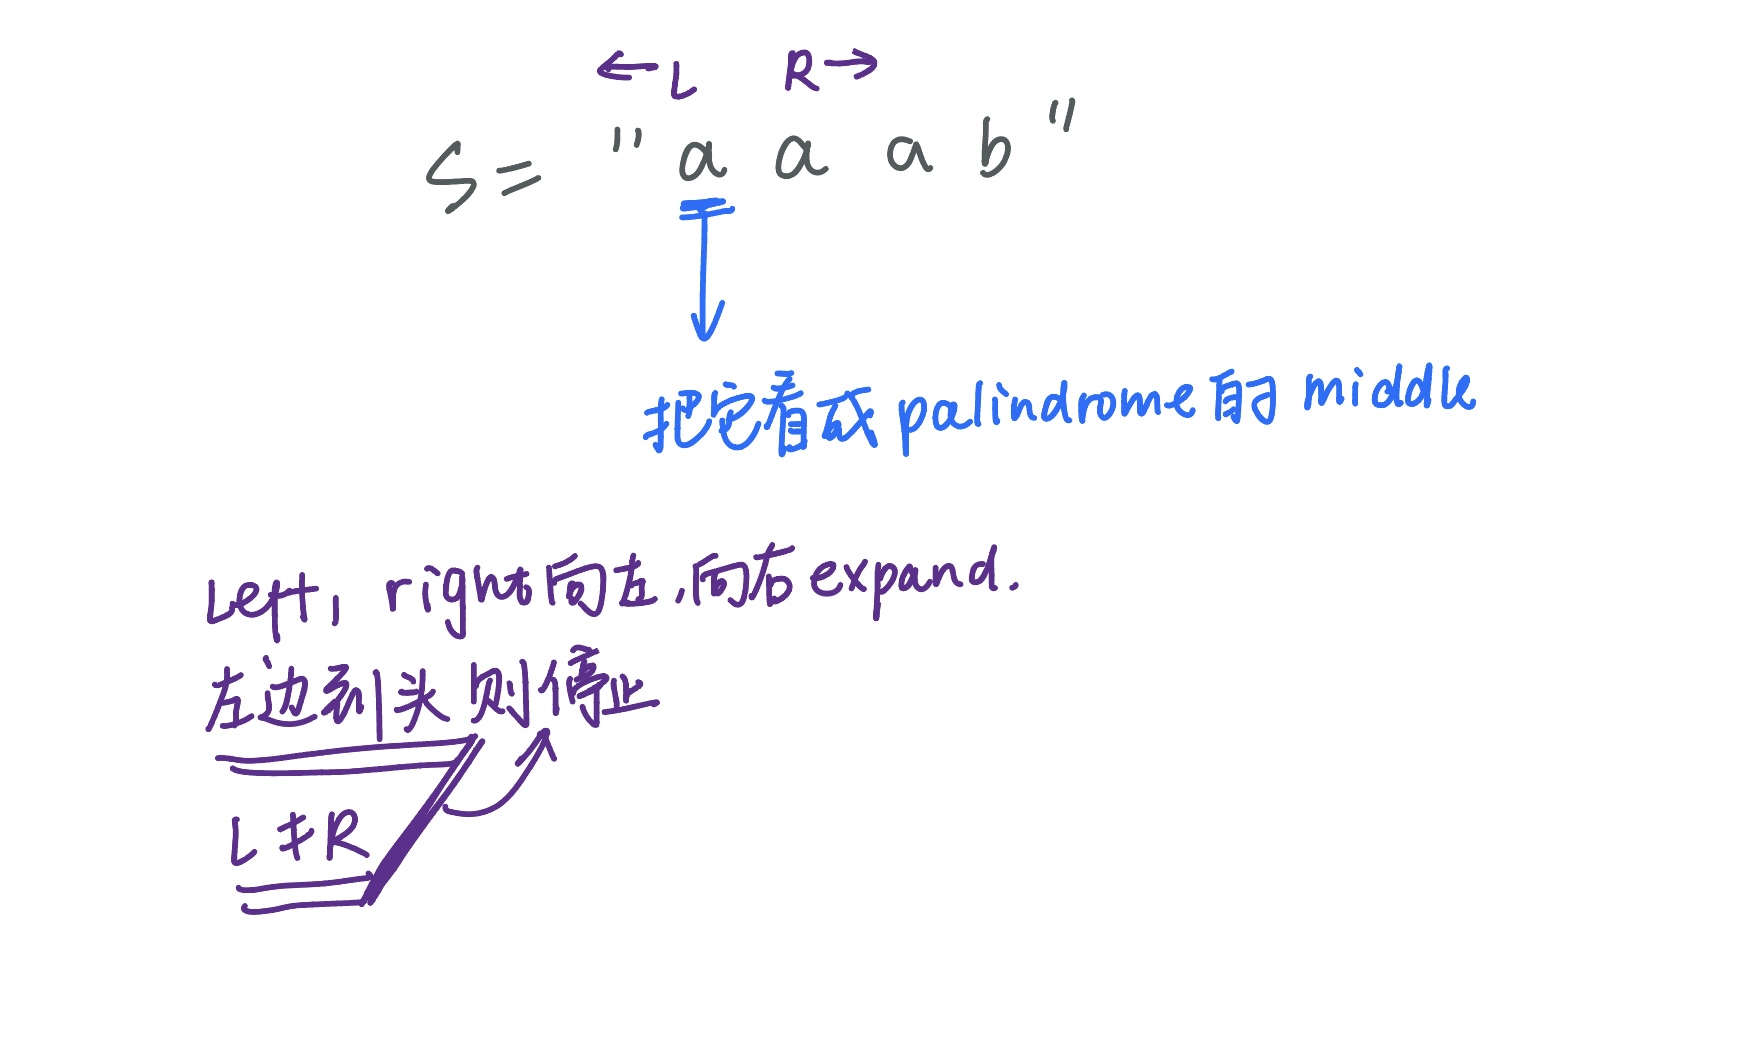 ← L R →
S = "a a a b"
把它看成 palindrome 的 middle
Left, right 向左,向右 expand.
左边到头 则停止
L ≠ R